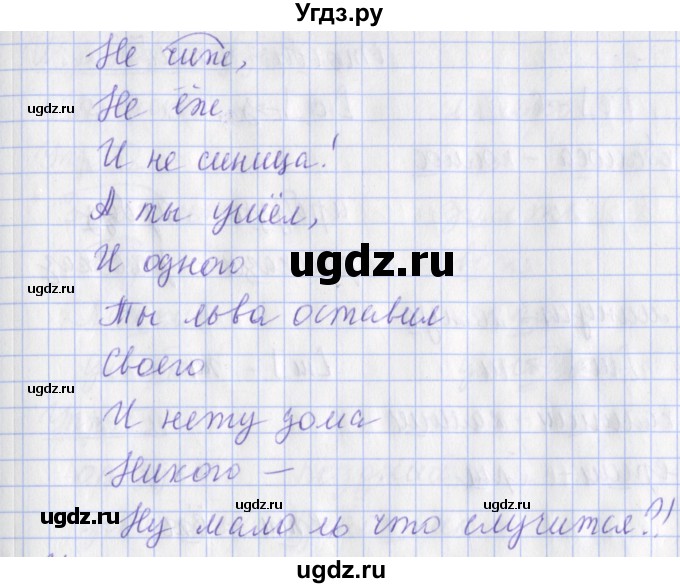 Угдз.ру
Не чиж,
Не ёж,
И не синица!
А ты ушёл,
И одного
Ты льва оставил
Своего
И нету дома
Никого —
Ну мало ль что случится?!
ugdz.ru
ugdz.ru
ugdz.ru
ugdz.ru
ugdz.ru
ugdz.ru
ugdz.ru
ugdz.ru
ugdz.ru
ugdz.ru